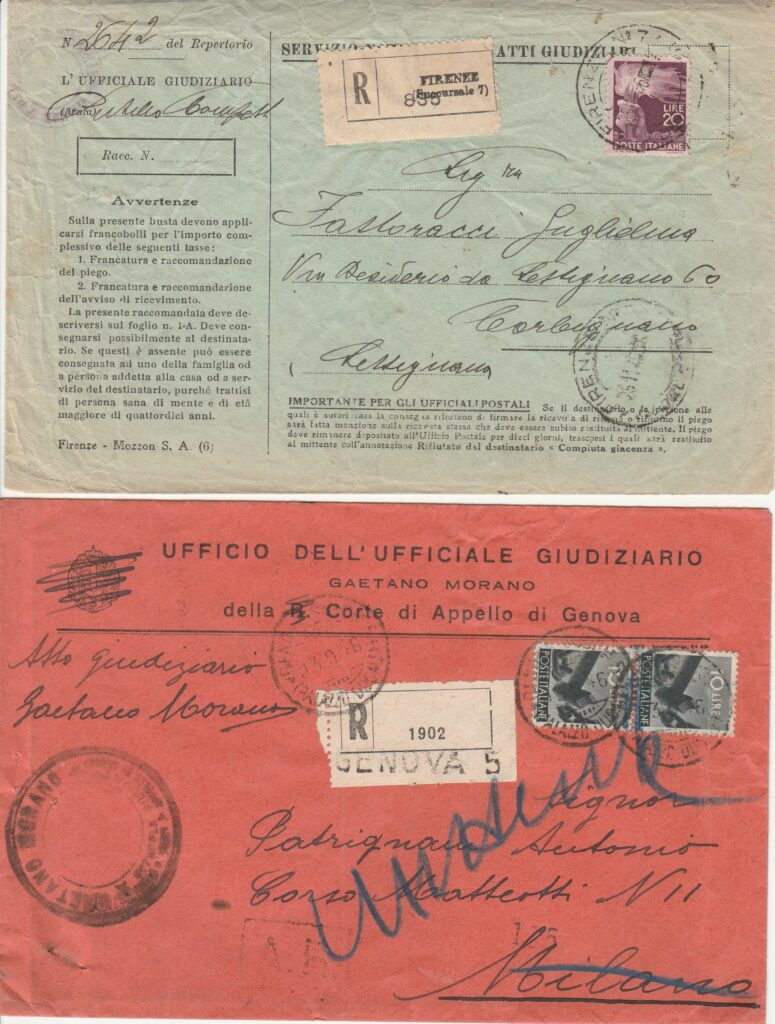 N. 2642 del Repertorio
L'UFFICIALE GIUDIZIARIO
(firma)
Racc. N.
Avvertenze
Sulla presente busta devono appli-
carsi francobolli per l'importo com-
plessivo delle seguenti tasse:
1. Francatura e raccomandazione
del piego.
2. Francatura e raccomandazione
dell'avviso di ricevimento.
La presente raccomandata deve de-
scriversi sul foglio n. 1-A. Deve con-
segnarsi possibilmente al destina-
tario. Se questi è assente può essere
consegnata ad uno della famiglia od
a persona addetta alla casa od a ser-
vizio del destinatario, purchè trattisi
di persona sana di mente e di età
maggiore di quattordici anni.
Firenze - Mozzon S. A. (6)
SERVIZIO ATTI GIUDIZIARI
R
FIRENZE
(Succursale 7)
835
LIRE
20
POSTE ITALIANE
FIRENZE N° 7
Sig ra
Fattoracci Guglielma
Via Desiderio da Settignano 60
Corbignano
(Settignano
IMPORTANTE PER GLI UFFICIALI POSTALI Se il destinatario o le persone alle
quali è autorizzata la consegna rifiutano di firmare la ricevuta di ritorno o rifiutino il piego
sarà fatta menzione sulla ricevuta stessa che deve essere subito restituita al mittente. Il piego
deve rimanere depositato all'Ufficio Postale per dieci giorni, trascorsi i quali sarà restituito
al mittente coll'annotazione Rifiutato dal destinatario « Compiuta giacenza ».
UFFICIO DELL'UFFICIALE GIUDIZIARIO
GAETANO MORANO
della R. Corte di Appello di Genova
Atto giudiziario
Gaetano Morano
R
1902
GENOVA 5
POSTE ITALIANE
10 LIRE
POSTE ITALIANE
10 LIRE
GAETANO MORANO
Signor
Patrignani Antonio
Corso Matteotti N 11
Milano